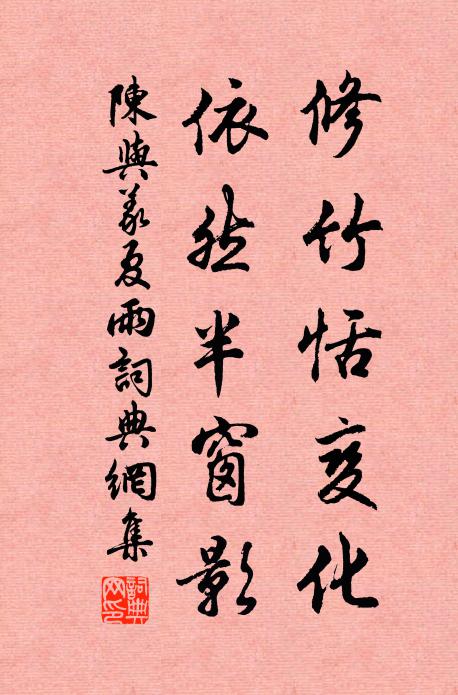 修竹恬变化
依然半窗影
陳與義夏雨詞典網集
詞典网印